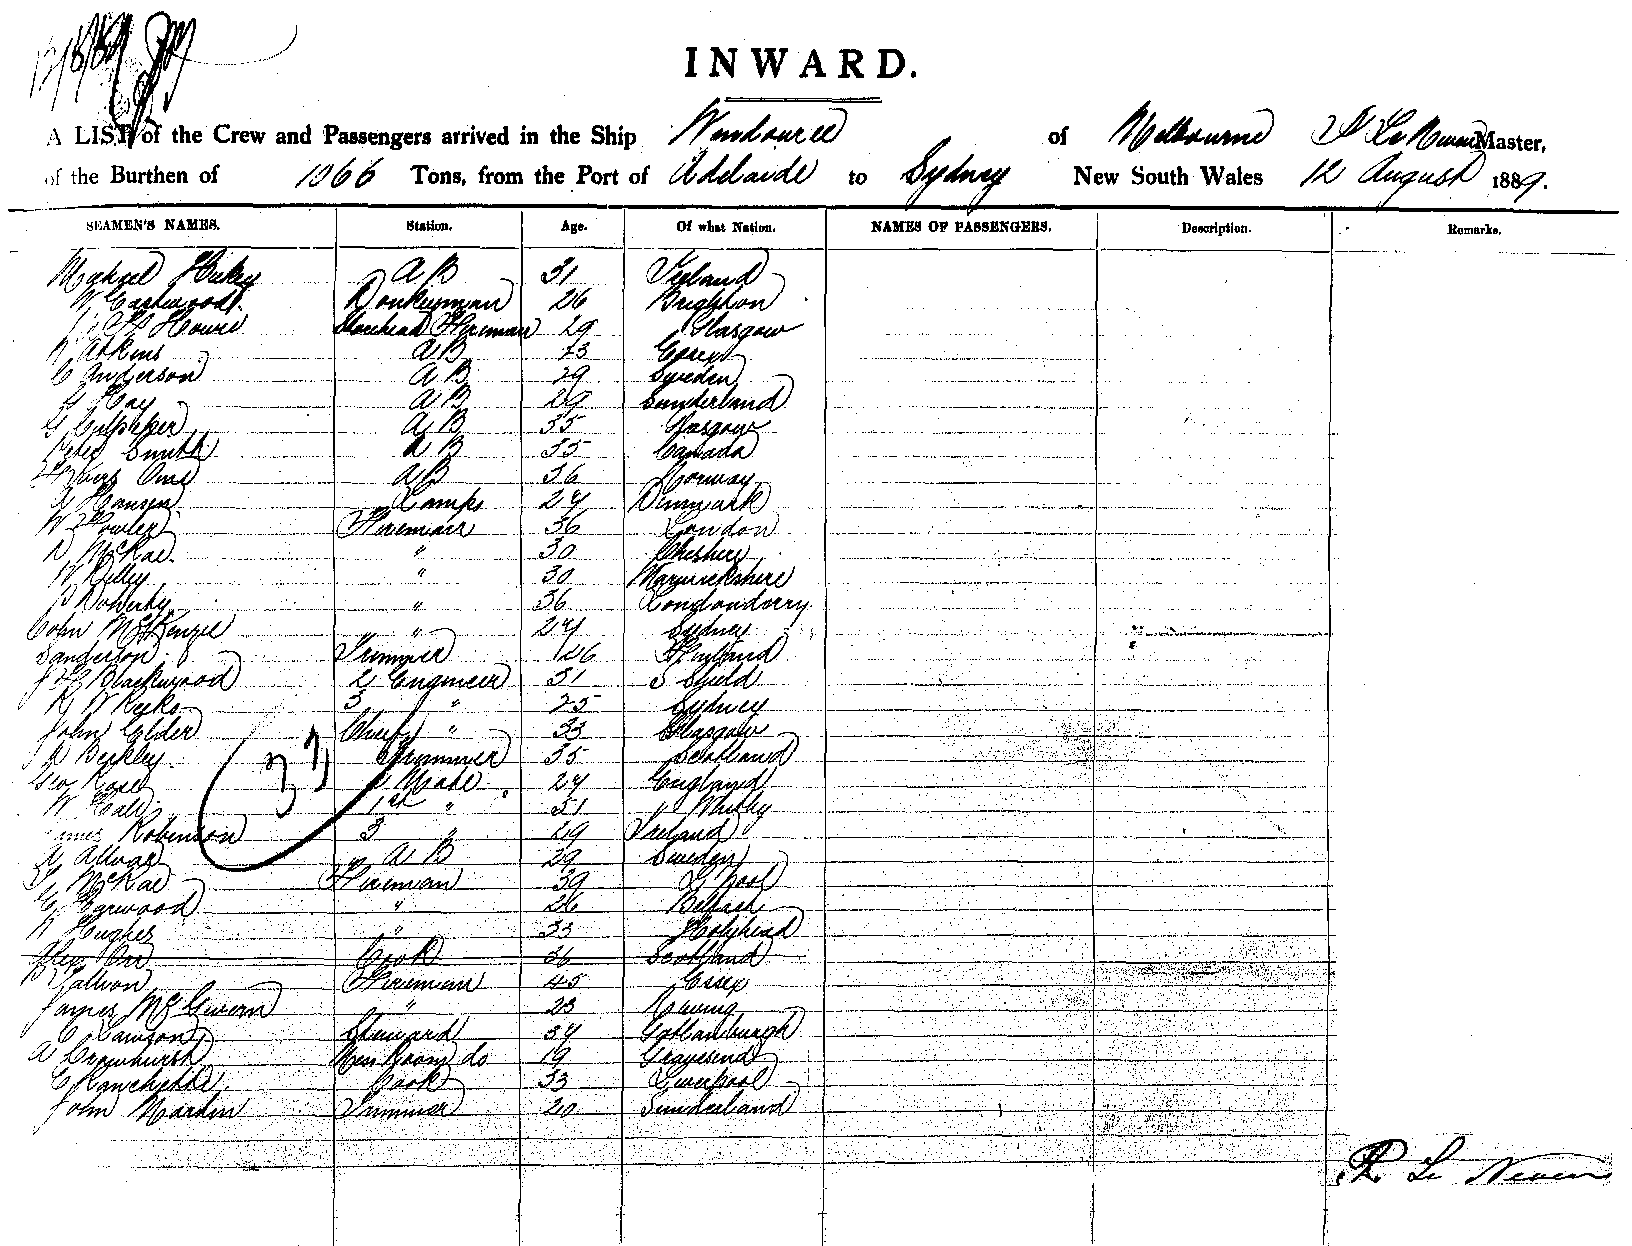 12/8/89
INWARD.
A LIST of the Crew and Passengers arrived in the Ship Windouree of Melbourne Le Neven Master,
of the Burthen of 1066 Tons, from the Port of Adelaide to Sydney New South Wales 12 August 1889.
SEAMEN'S NAMES. Station. Age. Of what Nation. NAMES OF PASSENGERS. Description. Remarks.
Michael Hickey A B 31 Ireland
W Eastwood Donkeyman 26 Brighton
Howie Storehead Fireman 29 Glasgow
R Atkins A B 23 Essex
C Anderson A B 29 Sweden
G Hay A B 29 Sunderland
G Culpeper A B 35 Glasgow
Peter Smith A B 35 Canada
A B 36 Norway
G Hansen Lamps 24 Denmark
W Fowler Fireman 36 London
D McRae " 30 Cheshire
W Kelley " 30 Warwickshire
P Doherty " 36 Londonderry
John McKenzie " 24 Sydney
Sanderson Trimmer 26 Finland
J G Blackwood 2 Engineer 31 S Shield
R W Reeks 3 " 25 Sydney
John Elder Chief " 33 Glasgow
A Berkley Trimmer 35 Scotland
Geo Rose 2 Mate 24 England
W Cale 1st " 51 " Whitby
James Robinson 3 " 29 Ireland
A Allvar A B 29 Sweden
G McRae Fireman 39 L'Pool
G Garwood " 26 Belfast
R Hughes " 33 Holyhead
Alex Orr Cook 36 Scotland
P Fallon Fireman 45 Essex
James McGivern " 23 Newry
C Lawson Steward 34 Gothenburgh
A Crowhurst Mess Room do 19 Gravesend
C Ranchette Cook 33 Liverpool
John Marden Trimmer 20 Sunderland
37
R Le Neven